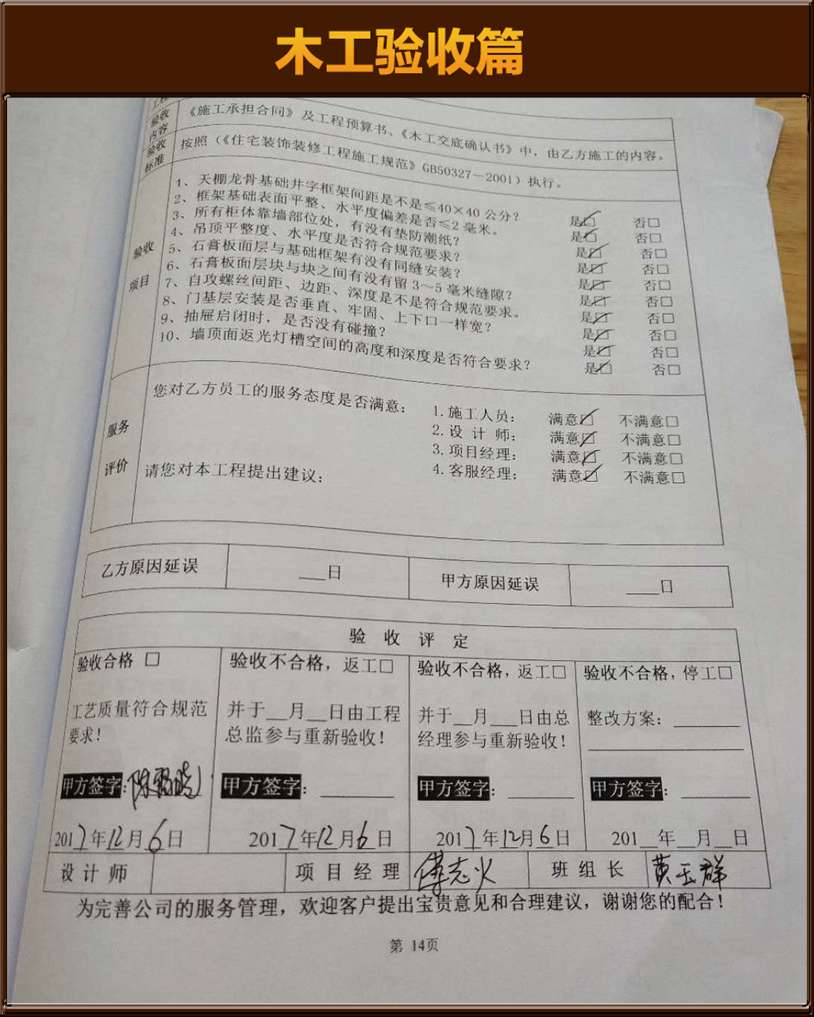 木工验收篇
验收内容
《施工承担合同》及工程预算书、《木工交底确认书》中，由乙方施工的内容。
验收标准
按照（《住宅装饰装修工程施工规范》GB50327－2001）执行。
验收项目
1、天棚龙骨基础井字框架间距是不是≤40×40公分？ 是☑ 否□
2、框架基础表面平整、水平度偏差是否≤2毫米。 是☑ 否□
3、所有柜体靠墙部位处，有没有垫防潮纸？ 是☑ 否□
4、吊顶平整度、水平度是否符合规范要求？ 是☑ 否□
5、石膏板面层与基础框架有没有同缝安装？ 是☑ 否□
6、石膏板面层块与块之间有没有留3～5毫米缝隙？ 是☑ 否□
7、自攻螺丝间距、边距、深度是不是符合规范要求。 是☑ 否□
8、门基层安装是否垂直、牢固、上下口一样宽？ 是☑ 否□
9、抽屉启闭时，是否没有碰撞？ 是☑ 否□
10、墙顶面返光灯槽空间的高度和深度是否符合要求？ 是☑ 否□
服务评价
您对乙方员工的服务态度是否满意：
1.施工人员： 满意☑ 不满意□
2.设计师： 满意☑ 不满意□
3.项目经理： 满意☑ 不满意□
4.客服经理： 满意☑ 不满意□
请您对本工程提出建议：
乙方原因延误 ___日 甲方原因延误 ___日
验收评定
验收合格 □ 验收不合格，返工□ 验收不合格，返工□ 验收不合格，停工□
工艺质量符合规范 并于__月__日由工程 并于__月___日由总 整改方案：______
要求！ 总监参与重新验收！ 经理参与重新验收！
甲方签字： 甲方签字：______ 甲方签字：______ 甲方签字：______
2017年12月6日 2017年12月6日 2017年12月6日 201__年__月__日
设计师 项目经理 班组长 黄玉群
为完善公司的服务管理，欢迎客户提出宝贵意见和合理建议，谢谢您的配合！
第 14页